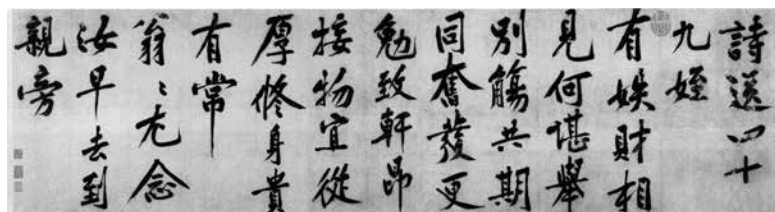 詩送四十
九姪
有妷財相
見何堪舉
別觴共期
同奮發更
勉致軒昂
接物宜從
厚修身貴
有常
翁〻尤念
汝早去到
親旁